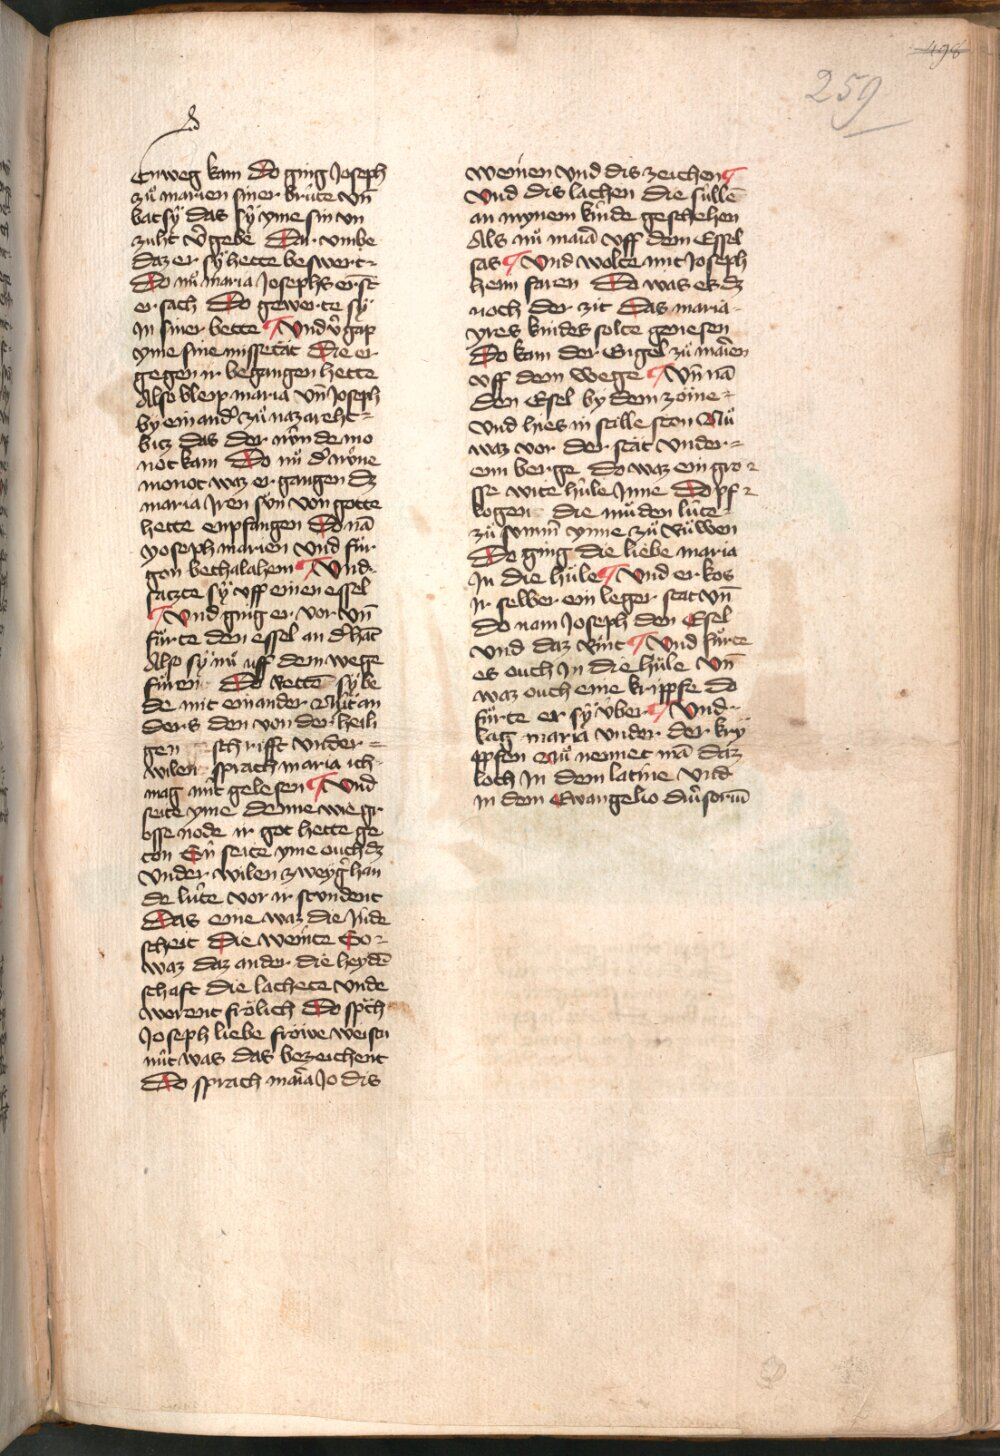 498
259
Enweg kam Do ging Joseph
zuͦ marien siner brûte vn̄
bat sÿ das sÿ yme sin vn
zuht v͛gebe Dar vmbe
daz er sÿ hette beswert
Do nuͦ maria Josephs erst
er sach Do gewerte sÿ
In siner bette ¶ Vnd v͛gap
yme sine missetât Die er
gegen ir begangen hette
Also bleip maria vn̄ Joseph
by ein and͛ zuͦ nazareht
bicz das der nv̈nde mo
not kam Do nuͦ d͛ nv̈ne
monot waz er gangen dz
maria Iren sün von gotte
hette enpfangen Do nā
yoseph marien vnd fuͤr
gon bethalahem ¶ Vnd
satzte sÿ vff einen essel
¶ Vnd ging er vor vn̄
fuͤrte den essel an d͛ hāt
Also sÿ nuͦ uff dem wege
fuͤren Do rettē sÿ be
de mit einander Nüt an
ders den von der heili
gen schrifft vnder
wilen sprach maria ich
mag nüt gelesen ¶ Vnd
seite yme denne wie gr
osse node ir got hette ge
ton Sÿ seite yme ouch dz
vnder wilen zweyg͛ han
de lûte vor ir stundent
Das eine waz die Jude
scheit Die weinte So
waz daz ander die heydē
schaft die lachete vnde
werent frölich Do sp̄ch
Joseph liebe fröwe weistu
nüt was das bezeichent
Do sprach maīa Jo dis
weinen vnd dis zeichen ¶
Vnd dis lachen die süllē
an mynem kinde geschehen
Als nuͦ maīa vff dem Essel
sas ¶ Vnd wolte mit Joseph
heim faren Do was es dz
noch der zit Das maria
yres kindes solte genesen
Do kam der Engel zuͦ maīen
vff dem wege ¶ Vn̄ nā
den Esel by dem zöine
Vnd hies in stille ston Nuͦ
waz vor der stat vnder
eim berge do waz ein gro
sse wite hüle Inne Do pf
logen die müden lûte
zuͦ sv̄mm̄ ynne zuͦ ruͦwen
Do ging die liebe maria
In die hüle ¶ Vnd er kos
Ir selber ein leger stat vn̄
do nam Joseph den Esel
vnd daz Rint ¶ Vnd fuͤrte
es ouch In die hüle Vn̄
waz ouch eine krippfe do
fuͤrte er sÿ vber ¶ Vnd
lag maria vnder der krÿ
ppfen Nuͦ nennet mā daz
loch In dem latine vnd
In dem Ewangelio diu͛soriū